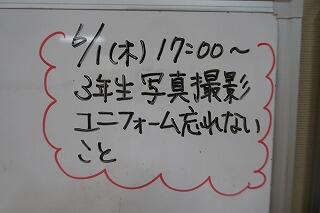 6/1(木)17:00～
3年生写真撮影
ユニフォーム忘れない
こと